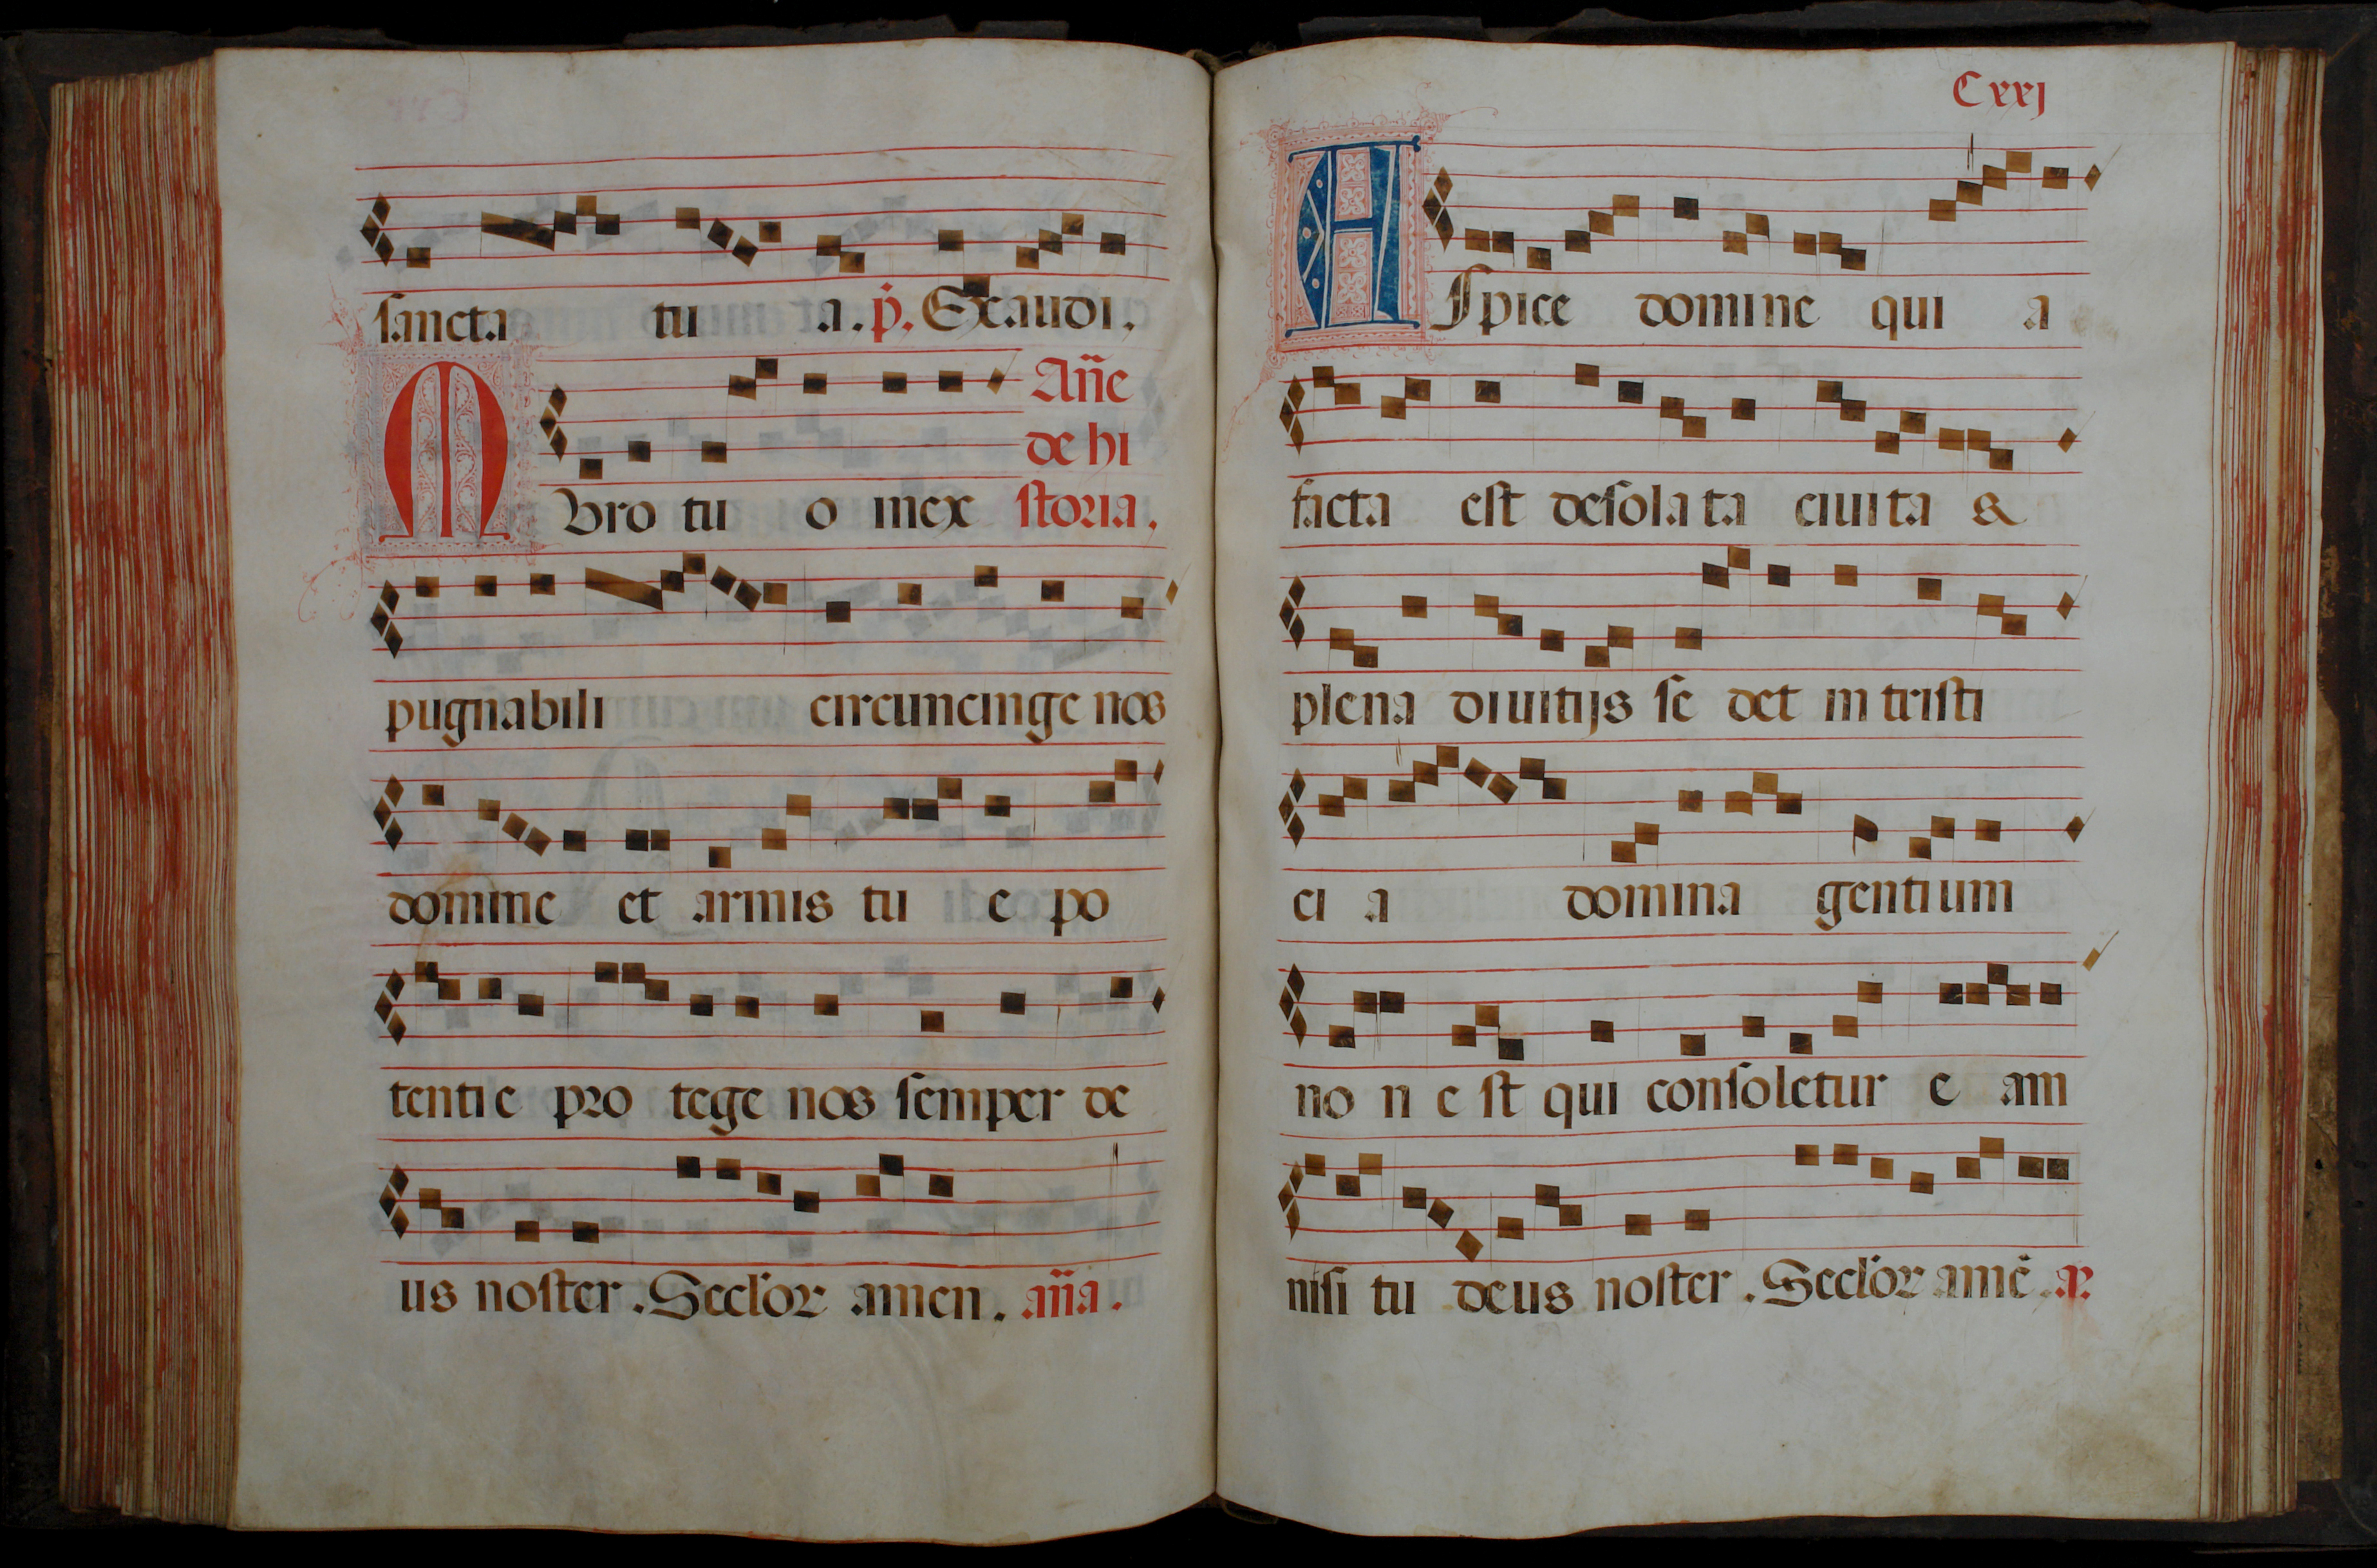 sancta tu a. p̃. Exaudi.
Añe
de hi
MVro tu o inex storia.
pugnabili circuncinge nos
domine et armis tu e po
tentie pro tege nos semper de
us noster. Seclor̃ amen. aña.
Cxxj
ASpice domine qui a
facta est desola ta ciuita &
plena diuitijs se det in tristi
ci a domina gentium
no n e st qui consoletur e am
nisi tu deus noster. Seclor̃ amẽ. a².